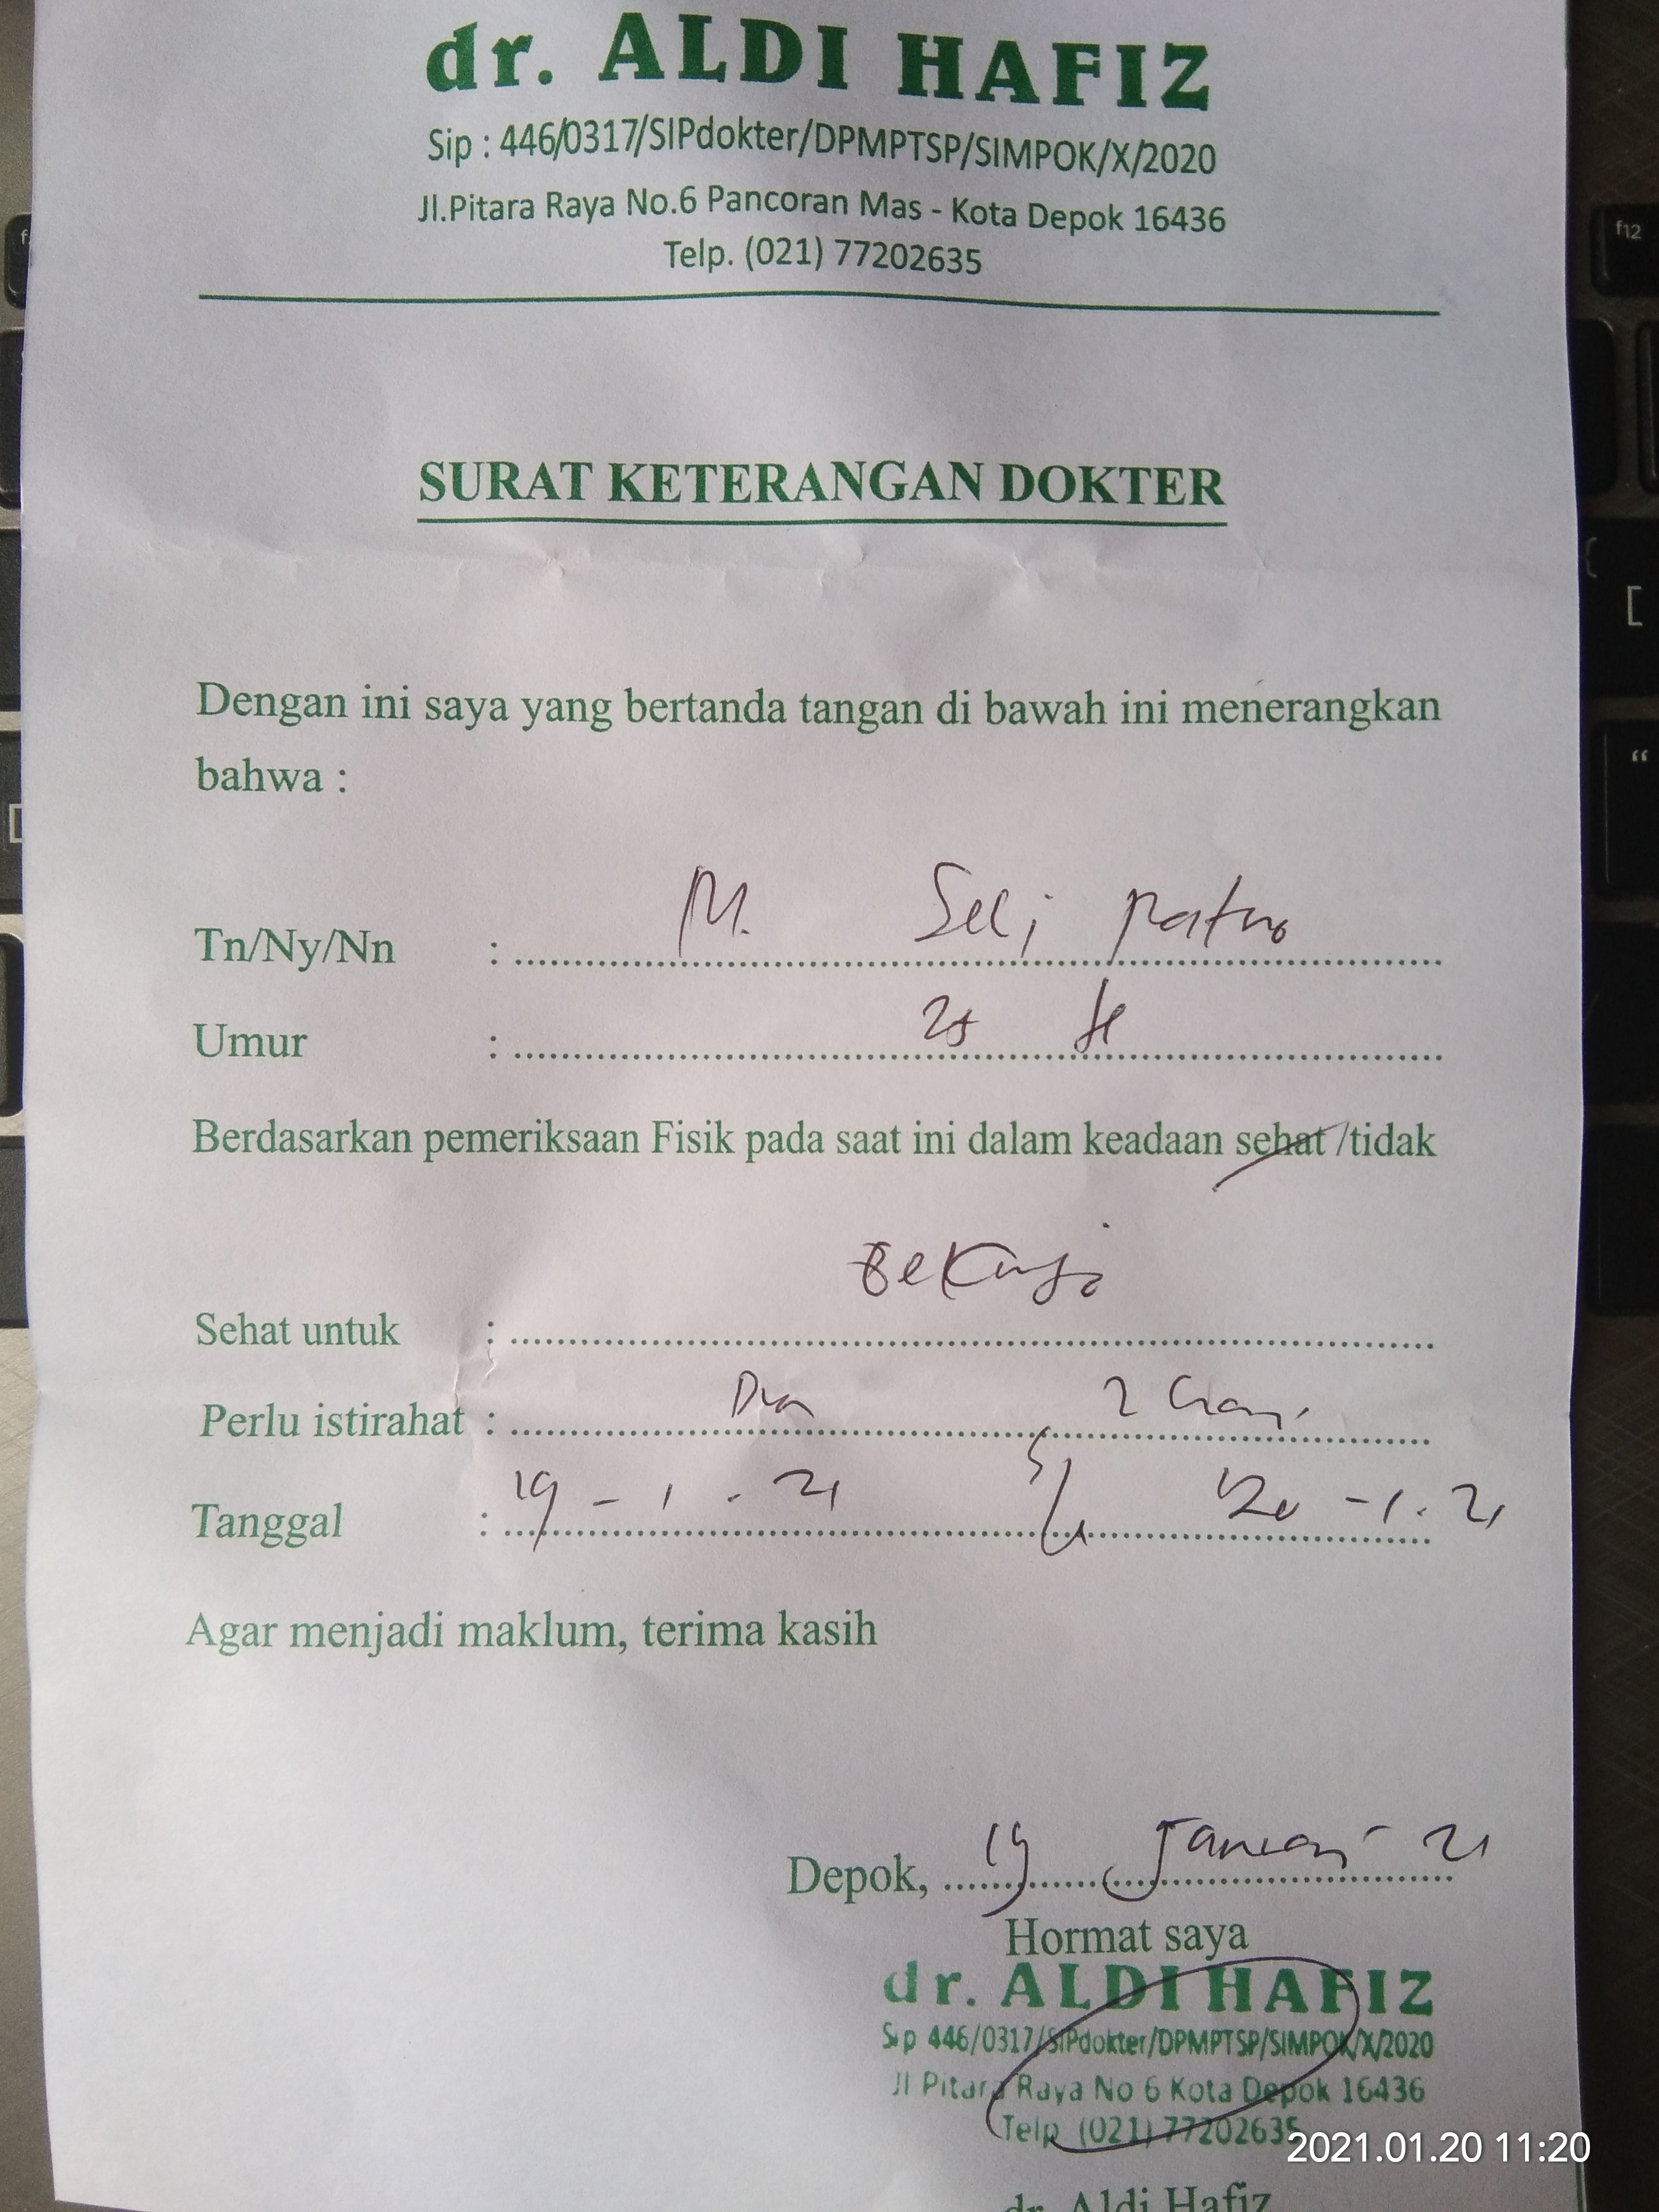 dr. ALDI HAFIZ
Sip : 446/0317/SIPdokter/DPMPTSP/SIMPOK/X/2020
Jl.Pitara Raya No.6 Pancoran Mas - Kota Depok 16436
Telp. (021) 77202635
SURAT KETERANGAN DOKTER
Dengan ini saya yang bertanda tangan di bawah ini menerangkan
bahwa :
Tn/Ny/Nn : M.
Umur :
Berdasarkan pemeriksaan Fisik pada saat ini dalam keadaan sehat /tidak
Sehat untuk :
Perlu istirahat : 2 hari
Tanggal : 19 - 1 - 21 s/d 20 - 1 - 21
Agar menjadi maklum, terima kasih
Depok, 19 Januari 21
Hormat saya
dr. ALDI HAFIZ
Sip 446/0317/SIPdokter/DPMPTSP/SIMPOK/X/2020
Jl Pitara Raya No 6 Kota Depok 16436
Telp (021) 77202635
2021.01.20 11:20
dr. Aldi Hafiz